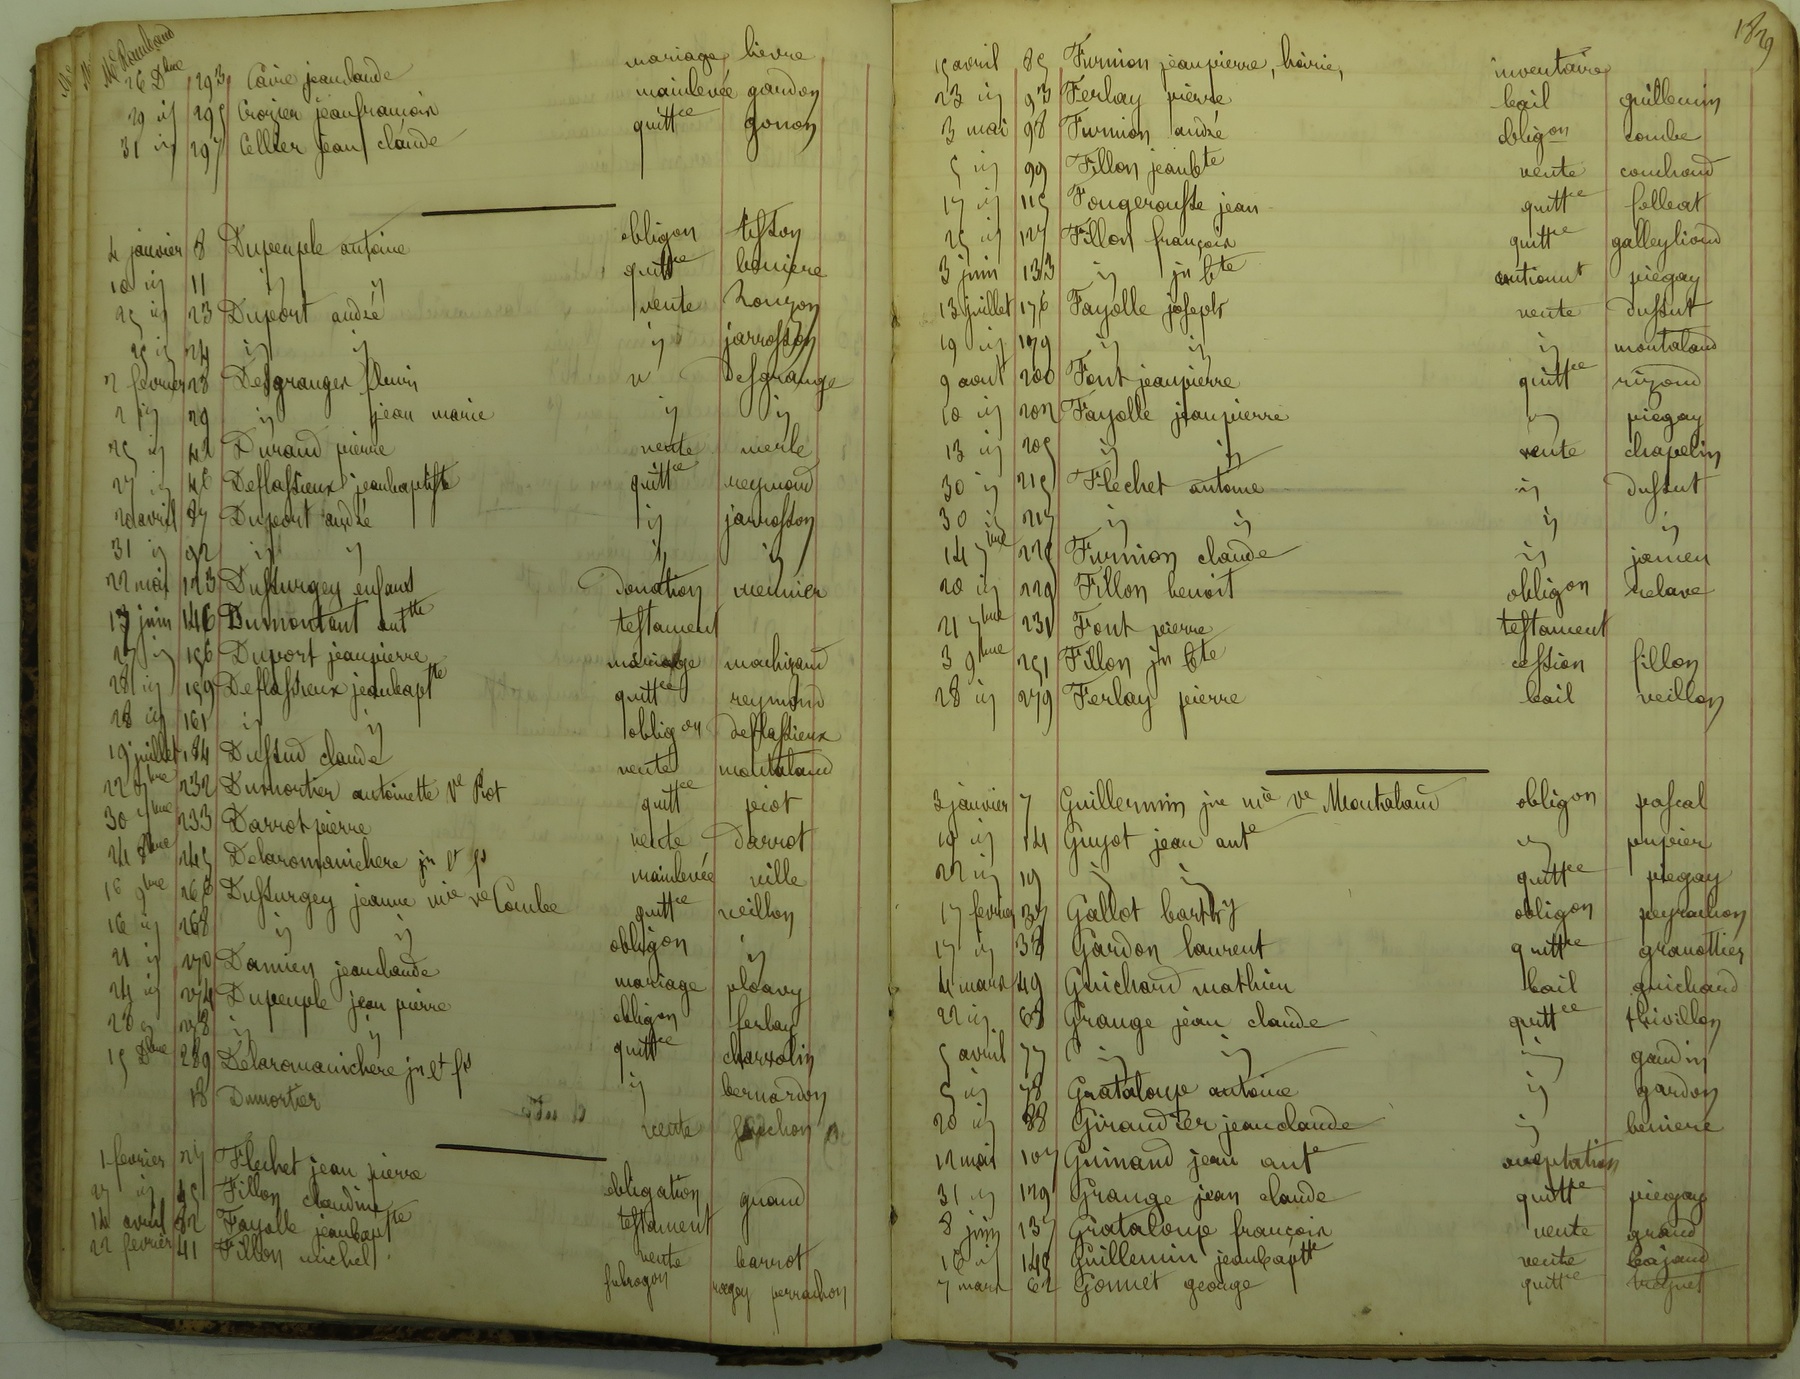 26 Dbre 293 Caire jeanclaude mariage lievre
29 ij 295 Crozier jeanfrancois mainlevée gardon
31 ij 297 Cellier jean claude quittce gonon
4 janvier 8 Dupeuple antoine obligon tisson
10 ij 11 ij ij quittce beniere
25 ij 23 Duport andré vente
25 ij 24 ij ij ij jarrosson
2 fevrier 28 Desgranges fleuri Desgrange
2 ij 29 ij jean marie ij ij
25 ij 42 Durand pierre vente merle
27 ij 46 Deflassieux jeanbaptiste quittce reymond
20 avril 87 Duport andré ij jarrosson
31 ij 92 ij ij ij ij
22 mai 123 Dussurgey enfant Donation meunier
13 juin 146 Dumontant antte testament
27 ij 156 Duport jeanpierre mariage
28 ij 159 Deflassieux jeanbaptte quittce reymond
28 ij 161 ij ij obligon deflassieux
19 juillet 184 Dussud claude vente montaland
22 232 Dumortier antoinette Ve Piot quittce piot
30 233 Darrot pierre vente Darrot
24 8bre 245 Delaromanichere jn et fs mainlevée ville
16 9bre 268 Dussurgey jeanne mie ve Combe quittce veillon
16 ij 268 ij ij obligon ij
21 ij 270 Damien jeanclaude mariage
24 ij 274 Dupeuple jean pierre obligon ferlay
28 ij 278 ij ij quittce
15 Dbre 289 Delaromanichere jn et fs ij bernardon
18 Dumortier vente
1 fevrier 27 Flechet jean pierre obligation
27 ij 45 Fillon claudine testament
14 avril 82 Fayolle jeanbaptte vente barrot
22 fevrier 41 Fillon michel subrogon
1829
15 avril 85 Furnion jeanpierre, hoirie, inventaire
23 ij 93 Ferlay pierre bail guillemin
3 mai 98 Furnion andré obligon combe
5 ij 99 Fillon jeanbte vente couchoud
17 ij 115 Fougerousse jean quittce folleat
25 ij 127 Fillon françois quittce
3 juin 133 ij jn bte piegay
13 juillet 176 Fayolle joseph vente dussut
19 ij 179 ij ij ij montaland
9 aout 200 Font jeanpierre quittce
10 ij 202 Fayolle jeanpierre ij piegay
13 ij 205 ij ij vente chapelin
30 ij 215 Flechet antoine ij dussut
30 ij 217 ij ij ij ij
14 7bre 225 Furnion claude ij jamen
20 ij 229 Fillon benoit obligon relave
21 7bre 231 Font pierre testament
3 9bre 251 Fillon jn bte cession fillon
28 ij 279 Ferlay pierre bail veillon
3 janvier 7 Guillermin jne mie ve Montaland obligon pascal
10 ij 14 Guyot jean ante ij pupier
22 ij 19 ij ij quittce piegay
17 fevrier 37 Gallot barthy obligon peyrachon
17 ij 38 Gardon laurent quittce granottier
4 mars 49 Guichard mathieu bail guichard
22 ij 68 Grange jean claude quittce thivillon
5 avril 77 ij ij ij gaudin
5 ij 78 Grataloup antoine ij gardon
20 ij 88 Giraudier jeanclaude ij beniere
12 mai 107 Guinand jean ante acceptation
31 ij 129 Grange jean claude quittce piegay
8 juin 137 Grataloup françois vente grand
16 ij 148 Guillemin jeanbaptte vente bajard
7 mars 62 Gonnet george quittce